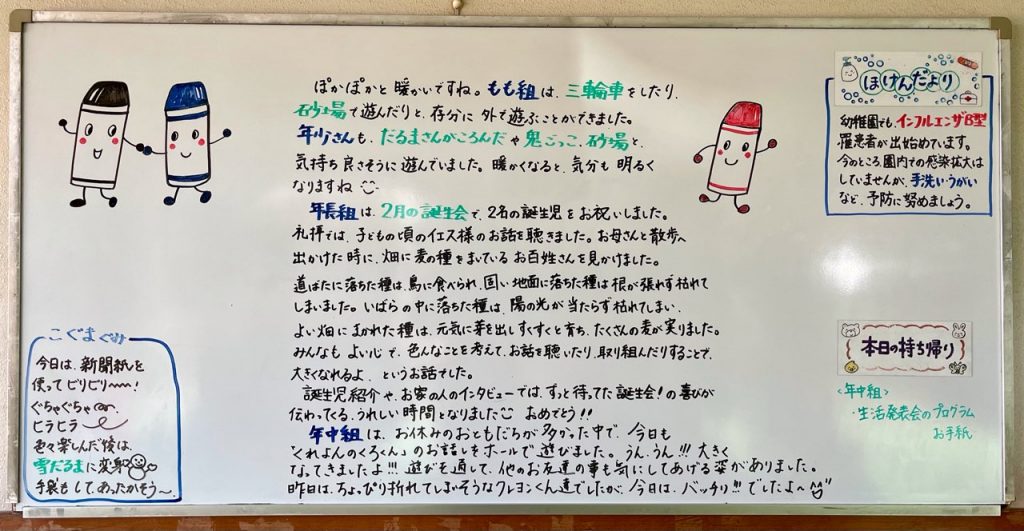 ぽかぽかと暖かいですね。もも組は、三輪車をしたり、
砂場で遊んだりと、存分に外で遊ぶことができました。
年少さんも、だるまさんがころんだや鬼ごっこ、砂場と、
気持ち良さそうに遊んでいました。暖かくなると、気分も明るく
なりますね
年長組は、2月の誕生会で、2名の誕生児をお祝いしました。
礼拝では、子どもの頃のイエス様のお話を聴きました。お母さんと散歩へ
出かけた時に、畑に麦の種をまいているお百姓さんを見かけました。
道ばたに落ちた種は、鳥に食べられ、固い地面に落ちた種は根が張れず枯れて
しまいました。いばらの中に落ちた種は、陽の光が当たらず枯れてしまい、
よい畑にまかれた種は、元気に芽を出しすくすくと育ち、たくさんの麦が実りました。
みんなもよい心で、色んなことを考えて、お話を聴いたり、取り組んだりすることで、
大きくなれるよ、というお話でした。
誕生児紹介や、お家の人のインタビューでは、ずっと待ってた誕生会!の喜びが
伝わってくる、うれしい時間となりました おめでとう!!
年中組は、お休みのおともだちが多かった中で、今日も
「くれよんのくろくん」のお話しをホールで遊びました。うん、うん!!!大きく
なってきましたよ!!!遊びを通して、他のお友達の事も気にしてあげる姿がありました。
昨日は、ちょっぴり折れてしまいそうなクレヨンくん達でしたが、今日は、バッチリ!!!でしたよ〜
ほけんだより
幼稚園でも、インフルエンザB型
罹患者が出始めています。
今のところ、園内での感染拡大は
していませんが、手洗い・うがい
など、予防に努めましょう。
本日の持ち帰り
<年中組>
・生活発表会のプログラム
お手紙
こぐまぐみ
今日は、新聞紙を
使ってビリビリ〜〜!
ぐちゃぐちゃ
ヒラヒラ
色々楽しんだ後は、
雪だるまに変身
手袋もして、あったかそう〜。